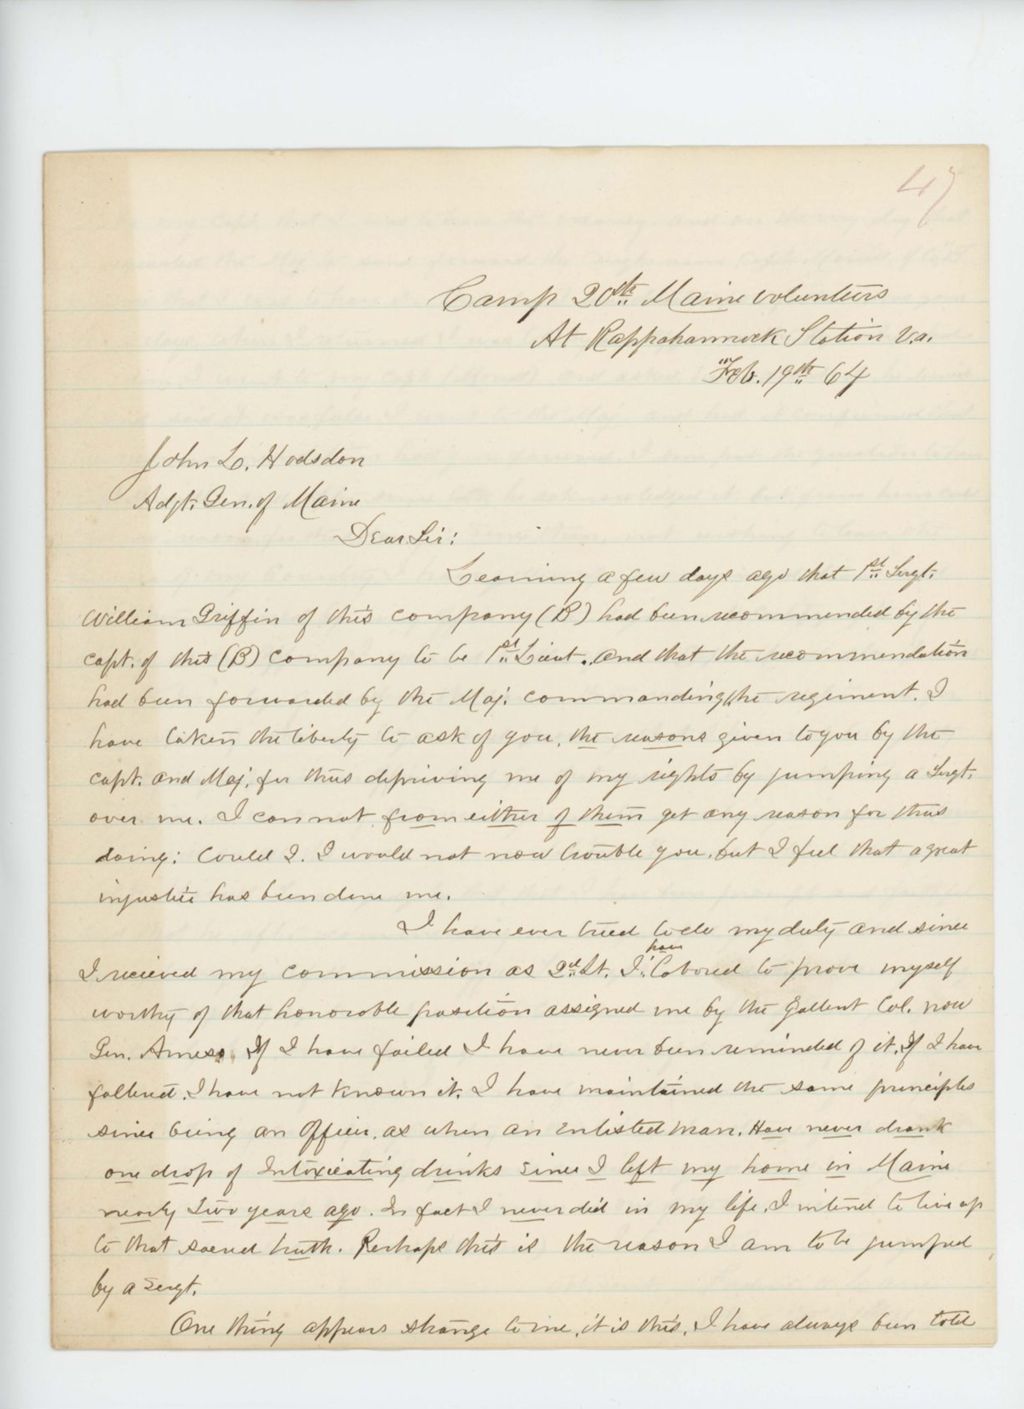 47
Camp 20th Maine volunteers
At Rappahannock Station Va.
Feb. 19th 64
John L. Hodsdon
Adjt. Gen. of Maine
Dear Sir:
Learning a few days ago that 1st Sergt.
William Griffin of this company (B) had been recommended by the
capt. of this (B) company to be 1st Lieut. and that the recommendation
had been forwarded by the Maj. commanding the regiment. I
have taken the liberty to ask of you, the reasons given to you by the
capt. and Maj. for thus depriving me of my rights by jumping a Sergt.
over me. I can not from either of them get any reason for thus
doing: Could I. I would not now trouble you, but I feel that a great
injustice has been done me.
I have ever tried to do my duty and since
I recieved my commission as 2d Lt. I have labored to prove myself
worthy of that honorable position assigned me by the gallent Col. now
Gen. Ames. If I have failed I have never been reminded of it. If I have
faltered, I have not known it. I have maintained the same principles
since being an Officer, as when an Enlisted man. Have never drank
one drop of Intoxicating drinks since I left my home in Maine
nearly Two years ago. In fact I never did in my life, I intend to live up
to that sacred truth. Perhaps this is the reason I am to be jumped
by a Sergt.
One thing appears strange to me, it is this, I have always been told